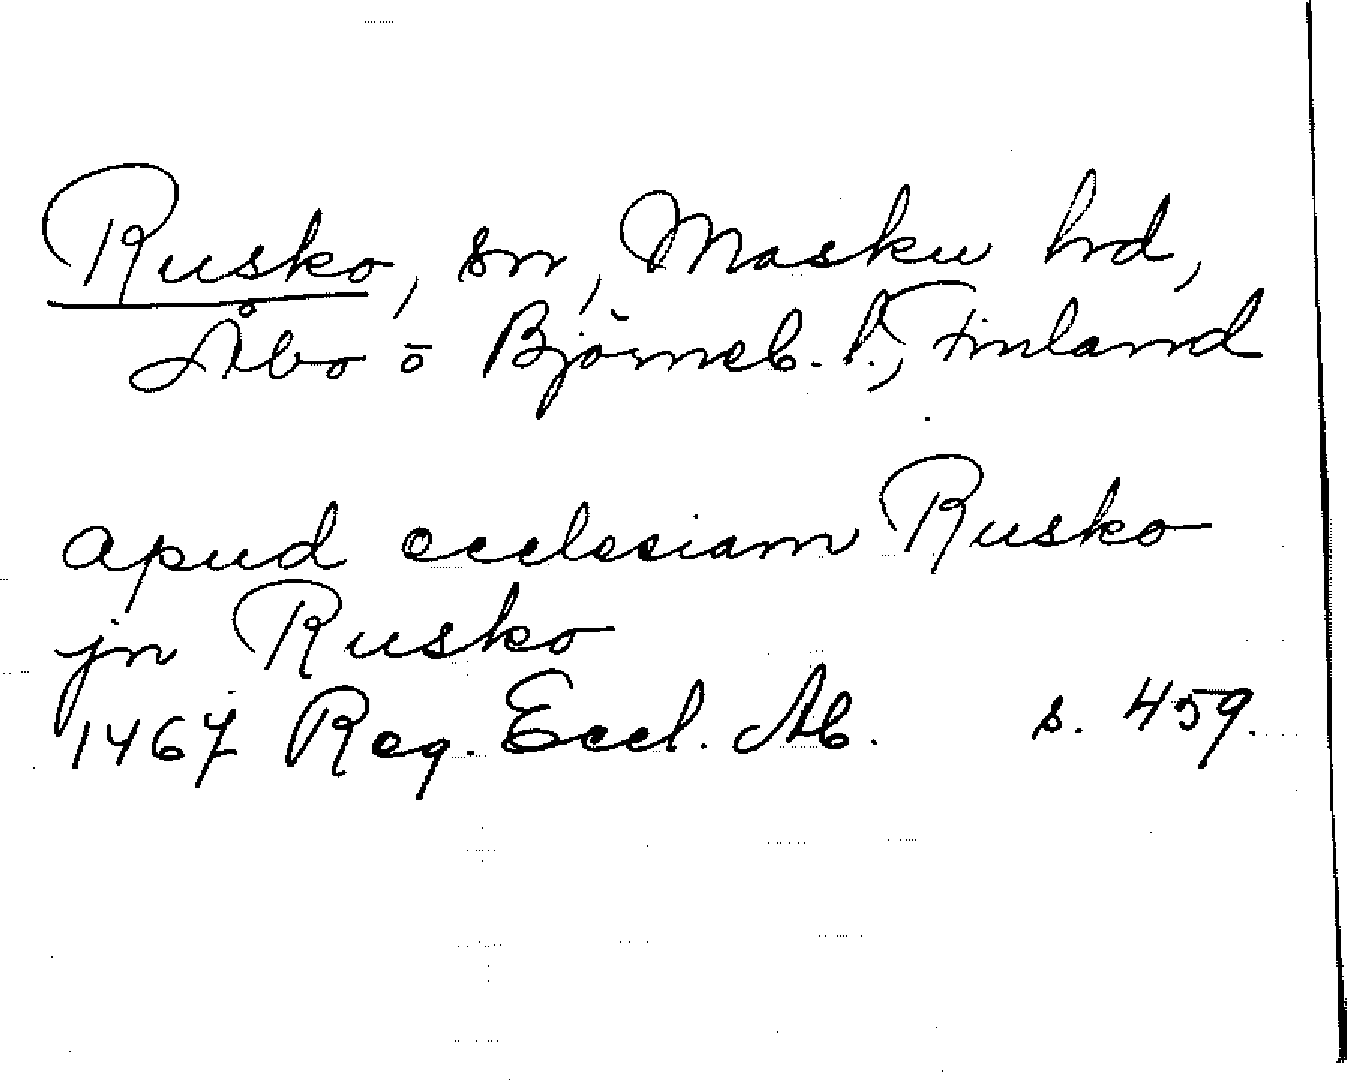 Rusko, sn, Masku hd,
Åbo o Björneb. l., Finland
apud ecclesiam Rusko
jn Rusko
1467 Reg. Eccl. Ab. s. 459.